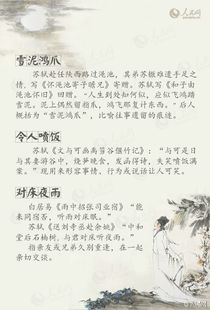 人民网
雪泥鸿爪
苏轼赴任陕西路过渑池，其弟苏辙难遣手足之
情，写《怀渑池寄子瞻兄》寄赠。苏轼写《和子由
渑池怀旧》回赠。“人生到处知何似，应似飞鸿踏
雪泥。泥上偶然留指爪，鸿飞那复计东西。”后人
概括为“雪泥鸿爪”，比喻往事遗留的痕迹。
令人喷饭
苏轼《文与可画筼筜谷偃竹记》：“与可是日
与其妻游谷中，烧笋晚食，发函得诗，失笑喷饭满
案。”现用来形容事情、行为或说话让人可笑。
对床夜雨
白居易《雨中招张司业宿》“能
来同宿否，听雨对床眠。”
苏轼《送刘寺丞赴余姚》“中和
堂后石楠树，与君对床听夜雨。”
指亲友或兄弟久别重逢，在一起
亲切交谈。